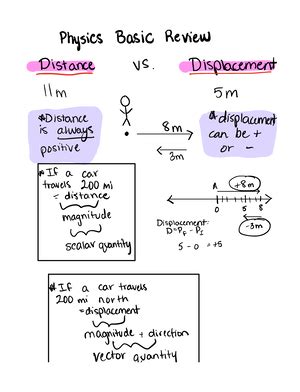 Physics Basic Review
Distance VS. Displacement
11m
5m
*Distance
is always
positive
8m
3m
*displacement
can be +
or -
*If a car
travels 200 mi
= distance
magnitude
scalar quantity
A
+8m
0 5 8
-3m
Displacement:
D=PF - PI
5 - 0 = +5
*If a car travels
200 mi north
=displacement
magnitude + direction
vector quantity